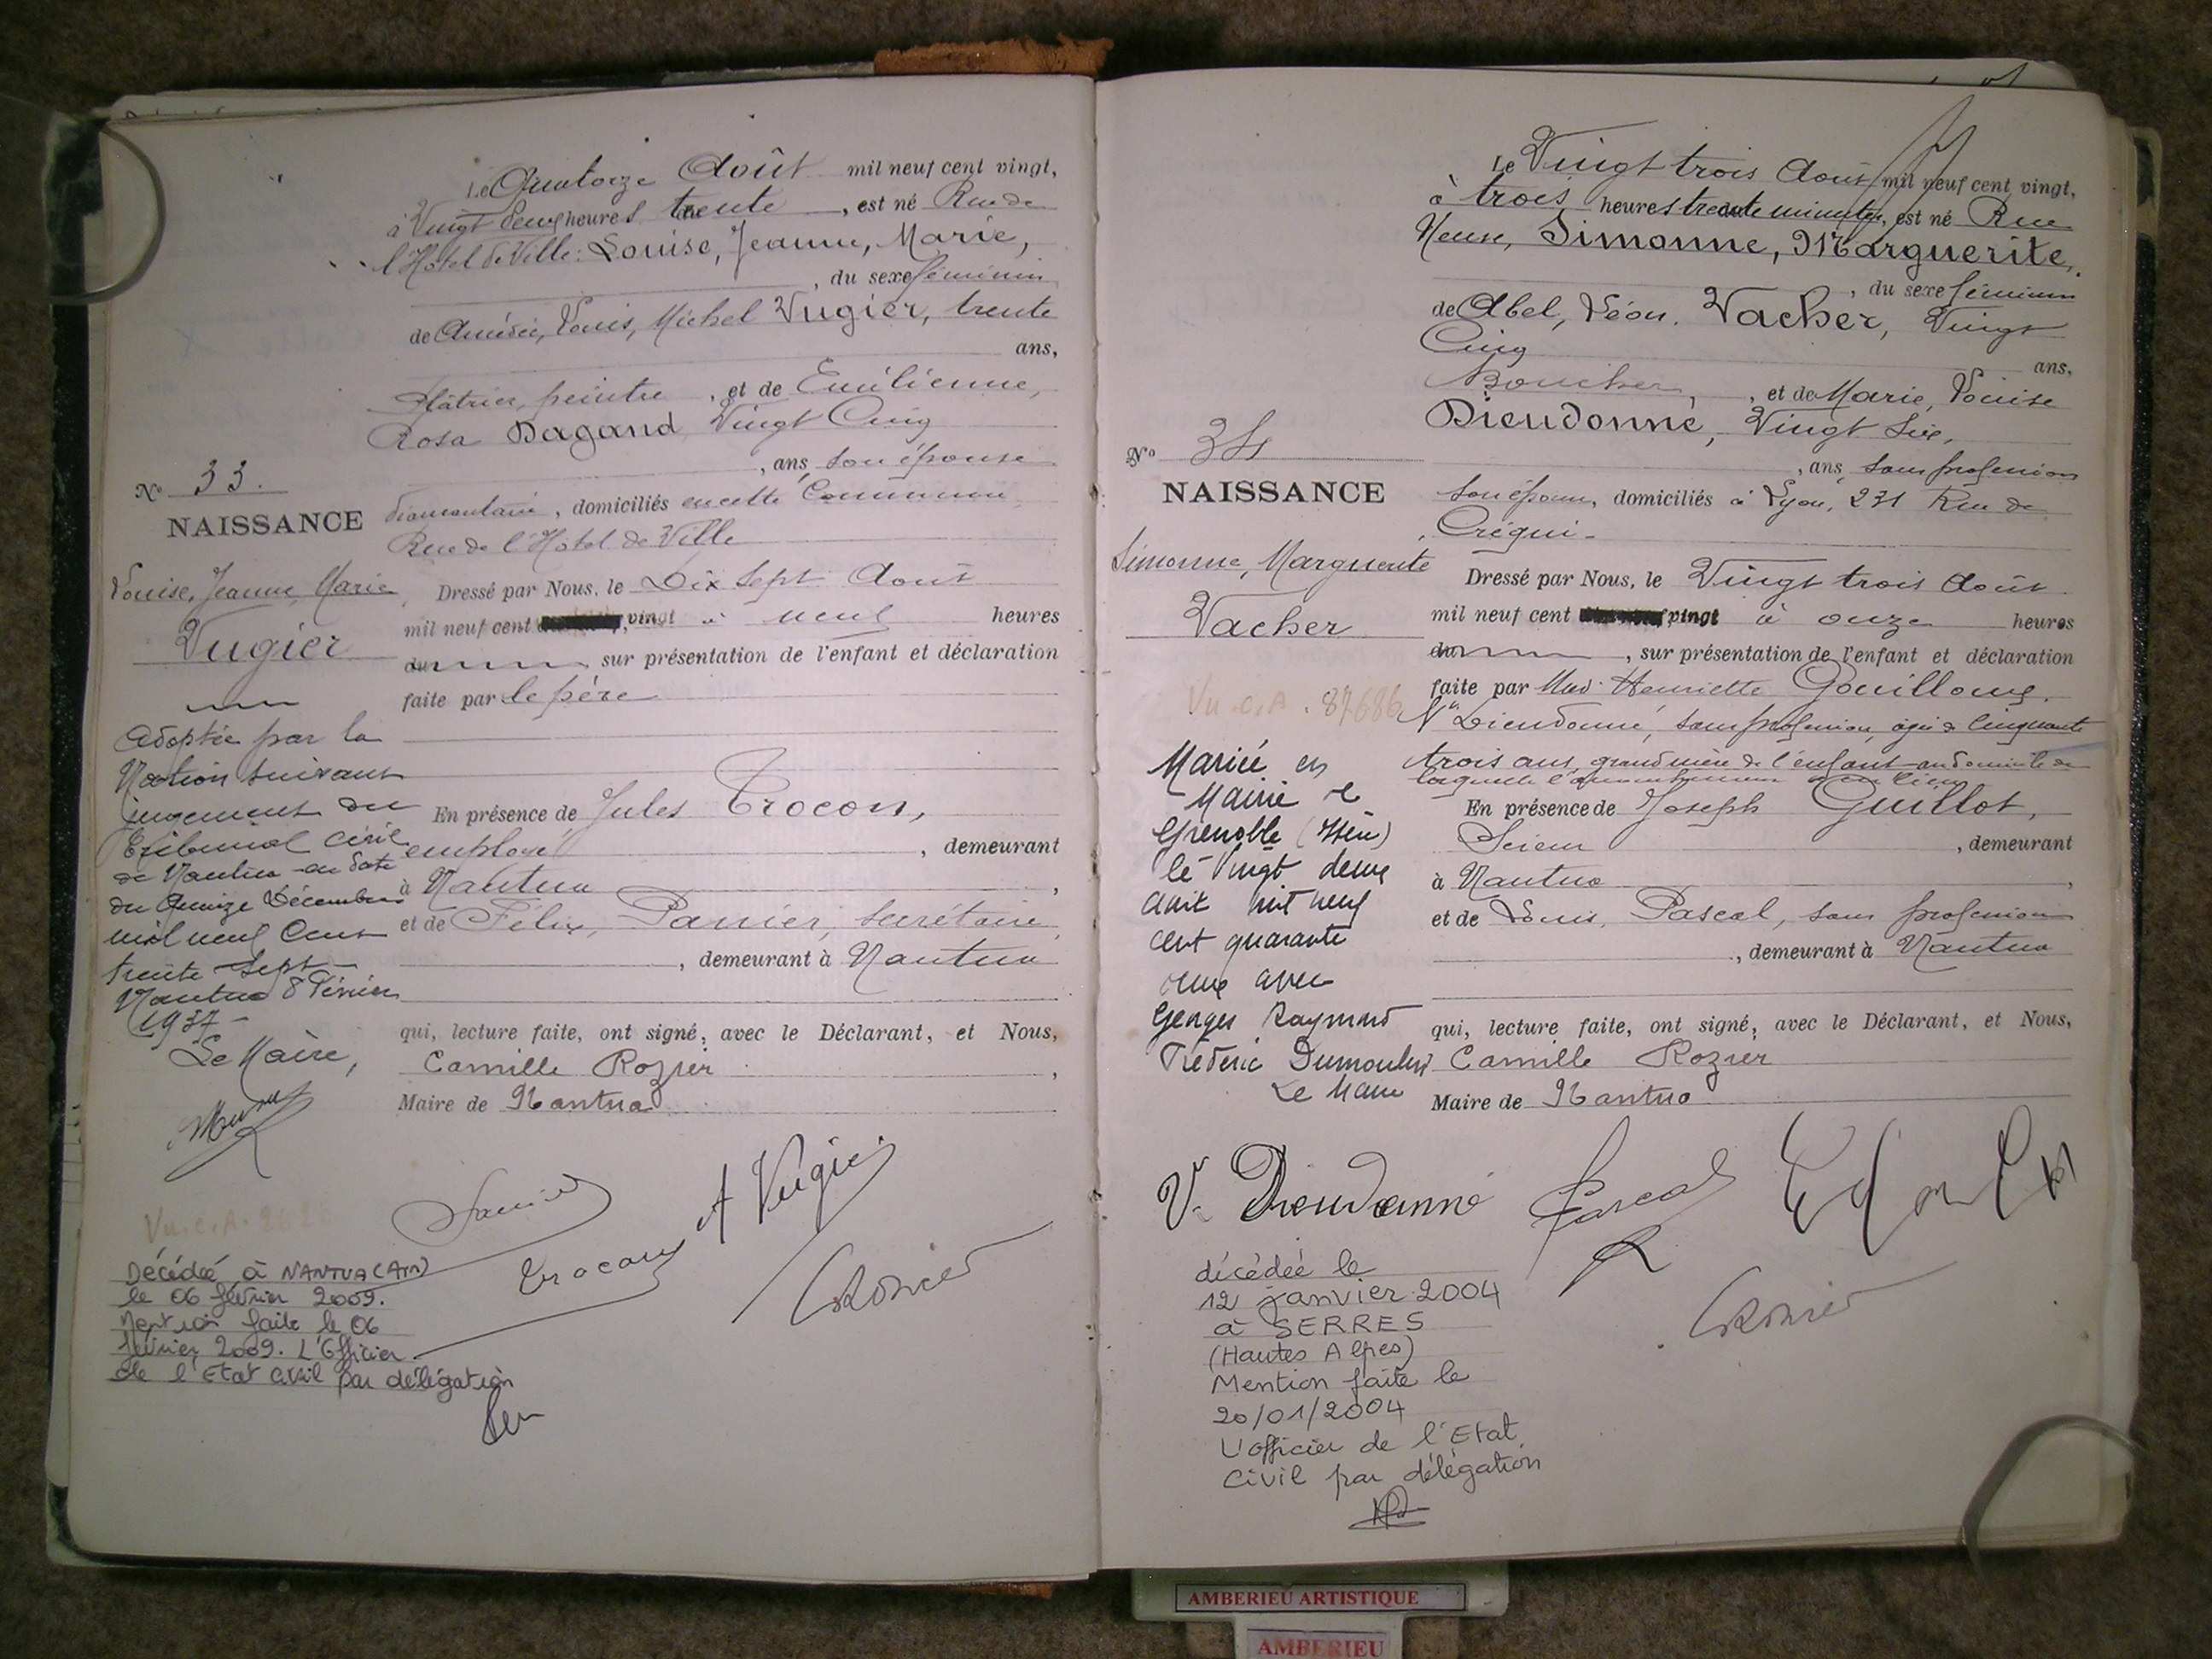 Le Quatorze Août mil neuf cent vingt,
à Vingt deux heures trente, est né Rue de
l'Hôtel de Ville: Louise, Jeanne, Marie,
, du sexe féminin
de Amédée, Louis, Michel Vugier, trente
ans,
Plâtrier, peintre, et de Emélienne,
Rosa Dagand Vingt Cinq
, ans, son épouse
diamantaire, domiciliés en cette Commune
Rue de l'Hôtel de Ville
No 33.
NAISSANCE
Louise, Jeanne, Marie
Vugier
Dressé par Nous, le Dix Sept Août
mil neuf cent vingt à neuf heures
du , sur présentation de l'enfant et déclaration
faite par le père
En présence de Jules Crocon,
employé, demeurant
à Nantua,
et de Félix, Panier, secrétaire,
, demeurant à Nantua
qui, lecture faite, ont signé, avec le Déclarant, et Nous,
Camille Rozier,
Maire de Nantua
Adoptée par la
Nation suivant
jugement du
Tribunal Civil
de Nantua en date
du Quinze Décembre
mil neuf Cent
trente Sept
Nantua 8 Février
1937-
Le Maire,
A Vugier
Vu.C.A.
Décédée à NANTUA (AIN)
le 06 février 2009.
Mention faite le 06
février 2009. L'Officier
de l'Etat Civil par délégation
Le Vingt trois Août mil neuf cent vingt,
à trois heures trente minutes, est né Rue
Neuve, Simonne, Marguerite,
, du sexe féminin
de Abel, Léon. Vacher, Vingt
Cinq
ans,
Boucher, et de Marie, Louise
Dieudonné, Vingt Six,
, ans, sans profession
son épouse, domiciliés à Lyon, 231 Rue de
Créqui-
No 34
NAISSANCE
Simonne, Marguerite
Vacher
Dressé par Nous, le Vingt trois Août
mil neuf cent vingt à onze heures
du , sur présentation de l'enfant et déclaration
faite par Mad. Henriette Gouilloux,
Vve Dieudonné, sans profession, âgée de Cinquante
trois ans, grand'mère de l'enfant au domicile de
laquelle l'accouchement a eu lieu
En présence de Joseph Guillot,
Scieur, demeurant
à Nantua,
et de Louis, Pascal, sans profession
, demeurant à Nantua
qui, lecture faite, ont signé, avec le Déclarant, et Nous,
Camille Rozier
Maire de Nantua
Vu.C.A. 87686
Mariée en
Mairie de
Grenoble (Isère)
le Vingt deux
août mil neuf
cent quarante
avec
Georges Raymond
Frédéric Dumoulin
Le Maire
Vve Dieudonné
Pascal
décédée le
12 janvier 2004
à SERRES
(Hautes Alpes)
Mention faite le
20/01/2004
L'officier de l'Etat
Civil par délégation
AMBERIEU ARTISTIQUE
AMBERIEU